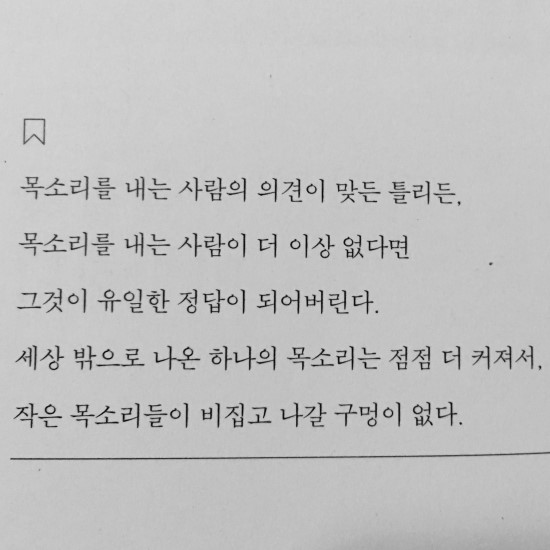 목소리를 내는 사람의 의견이 맞든 틀리든,
목소리를 내는 사람이 더 이상 없다면
그것이 유일한 정답이 되어버린다.
세상 밖으로 나온 하나의 목소리는 점점 더 커져서,
작은 목소리들이 비집고 나갈 구멍이 없다.